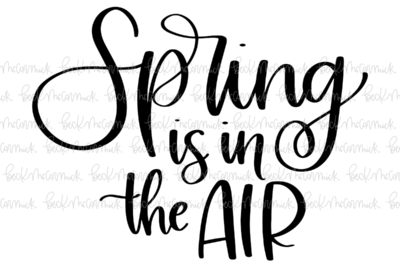 Spring
is in
the AIR